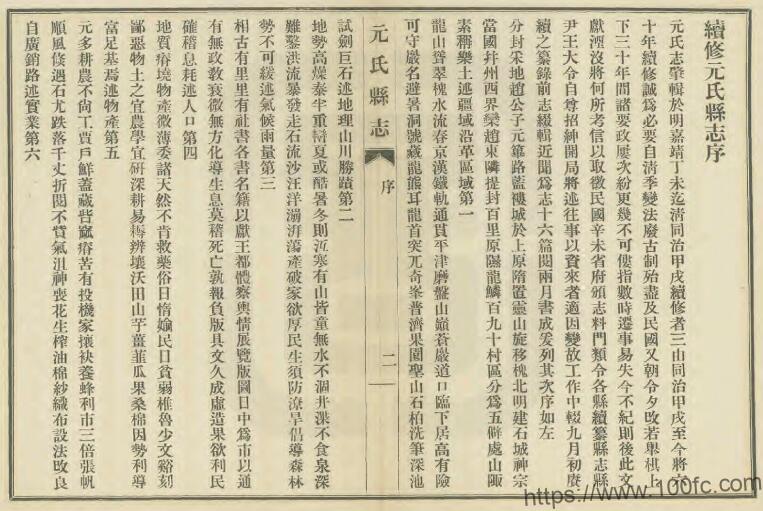 續修元氏縣志序
元氏志肇輯於明嘉靖丁未迄清同治甲戌續修者三由同治甲戌至今將六
十年續修誠爲必要自清季變法廢古制殆盡及民國又朝令夕改若舉棋上
下三十年間諸要政屢次紛更幾不可僂指數時遷事易失今不紀則後此文
獻湮沒將何所考信以取徵民國辛未省府頒志料門類令各縣續纂縣志縣
尹王大令自尊招紳開局將述往事以資來者適因變故工作中輟九月初賡
續之纂錄前志綴輯近聞爲志十六篇閱兩月書成爰列其次序如左
分封采地趙公子元篳路藍褸城於上原隋置靈山旋移槐北明建石城神宗
當國幷州西界欒趙東隣提封百里原隰龍鱗百九十村區分爲五僻處山陬
素稱樂土述疆域沿革區域第一
龍山聳翠槐水流春京漢鐵軌通貫平津磨盤山嶺蒼巖道口臨下居高有險
可守嚴名避暑洞號藏龍熊耳龍首突兀奇峯普濟果園聖山石柏洗筆深池
元氏縣志
序
二
試劍巨石述地理山川勝蹟第二
地勢高燥泰半重巒夏或酷暑冬則沍寒有山皆童無水不涸井渫不食泉深
難鑿洪流暴發走石流沙汪洋溺湃蕩產破家欲厚民生須防潦旱倡導森林
勢不可緩述氣候雨量第三
相古有里里有社書各書名籍以獻王都體察輿情展覽版圖日中爲市以通
有無政教衰微無方化導生息莫稽死亡孰報負版具文久成虛造果欲利民
確稽息耗述人口第四
地質瘠墝物產微薄委諸天然不肯救藥俗日惰媮民日貧弱椎魯少文谿刻
鄙惡物土之宜農學宜研深耕易耨辨壤沃田山芋薑韮瓜果桑棉因勢利導
富足基焉述物產第五
元多耕農不尙工賈戶鮮蓋藏呰窳瘠苦有投機家攘袂養蜂利市三倍張帆
順風倏遇石尤跌落千丈折閱不貲氣沮神喪花生榨油棉紗織布設法改良
自廣銷路述實業第六
https://www.100fc.com